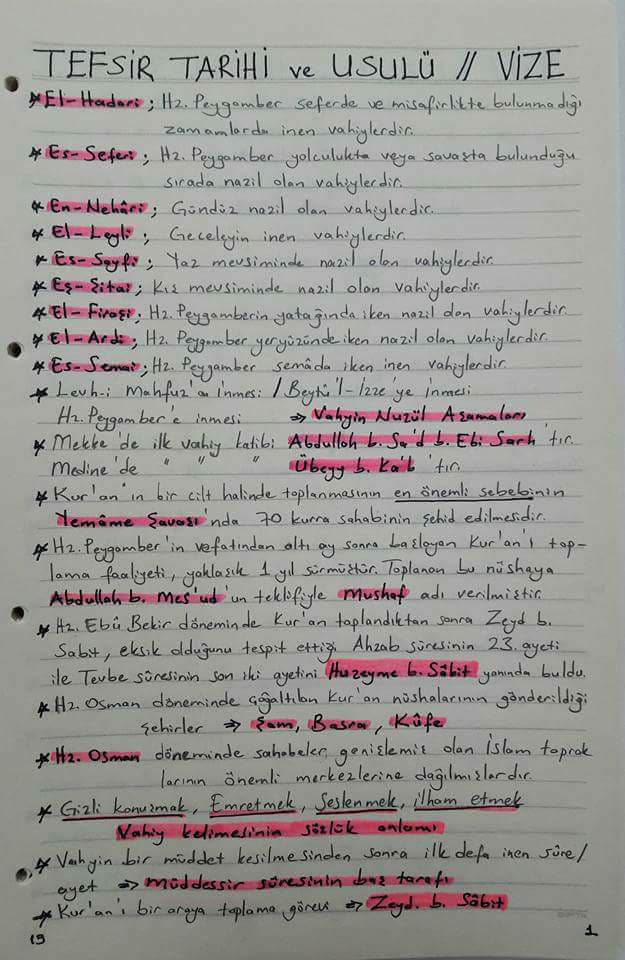 TEFSİR TARİHİ ve USULÜ // VİZE
* El-Hadari; Hz. Peygamber seferde ve misafirlikte bulunmadığı
zamanlarda inen vahiylerdir.
* Es-Seferi; Hz. Peygamber yolculukta veya savaşta bulunduğu
sırada nazil olan vahiylerdir.
* En-Nehâri; Gündüz nazil olan vahiylerdir.
* El-Leyli; Geceleyin inen vahiylerdir.
* Es-Sayfi; Yaz mevsiminde nazil olan vahiylerdir.
* Eş-Şitai; Kış mevsiminde nazil olan vahiylerdir.
* El-Firaşi; Hz. Peygamberin yatağında iken nazil olan vahiylerdir.
* El-Ardi; Hz. Peygamber yeryüzünde iken nazil olan vahiylerdir.
* Es-Semai; Hz. Peygamber semâda iken inen vahiylerdir.
* Levh-i Mahfuz'a inmesi / Beytü'l-İzze'ye inmesi
Hz. Peygamber'e inmesi => Vahyin Nuzül Aşamaları
* Mekke'de ilk vahiy katibi Abdullah b. Sa'd b. Ebi Sarh'tır.
Medine'de " " " Übeyy b. Ka'b'tır.
* Kur'an'ın bir cilt halinde toplanmasının en önemli sebebinin
Yemâme Savaşı'nda 70 kurra sahabinin şehid edilmesidir.
* Hz. Peygamber'in vefatından altı ay sonra başlayan Kur'an'ı top-
lama faaliyeti, yaklaşık 1 yıl sürmüştür. Toplanan bu nüshaya
Abdullah b. Mes'ud'un teklifiyle Mushaf adı verilmiştir.
* Hz. Ebû Bekir döneminde Kur'an toplandıktan sonra Zeyd b.
Sabit, eksik olduğunu tespit ettiği Ahzab sûresinin 23. ayeti
ile Tevbe sûresinin son iki ayetini Huzeyme b. Sâbit yanında buldu.
* Hz. Osman döneminde çoğaltılan Kur'an nüshalarının gönderildiği
şehirler => Şam, Basra, Kûfe
* Hz. Osman döneminde sahabeler, genişlemiş olan İslam toprak
larının önemli merkezlerine dağılmışlardır.
* Gizli konuşmak, Emretmek, Seslenmek, ilham etmek
Vahiy kelimesinin sözlük anlamı
* Vahyin bir müddet kesilmesinden sonra ilk defa inen sûre/
ayet => müddessir sûresinin baş tarafı
* Kur'an'ı bir araya toplama görevi => Zeyd. b. Sâbit
19 1